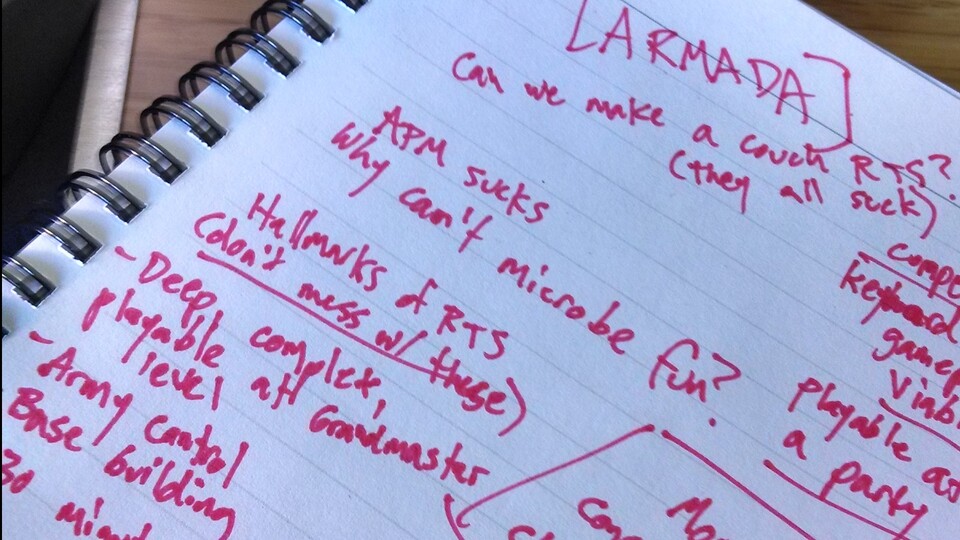 [ARMADA]
Can we make a couch RTS?
(they all suck)
APM sucks
Why can't microbe fun?
Hallmarks of RTS
(don't mess w/ these)
- Deep, complex,
playable at
level Grandmaster
- Army control
Base building
30
keyboard
Playable as
a party